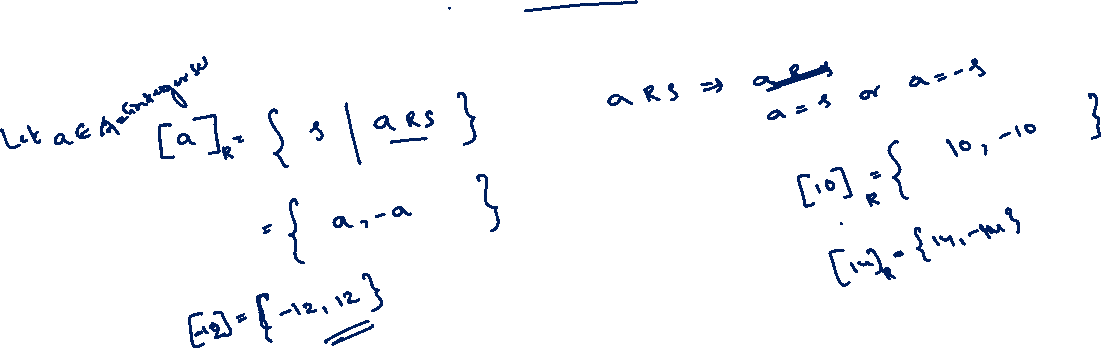 Let a ∈ A = integers
[a]_R = { s | a R s }
= { a, -a }
[-12] = { -12, 12 }
a R s ⇒ a R s
a = s or a = -s
[10]_R = { 10, -10 }
[14]_R = { 14, -14 }